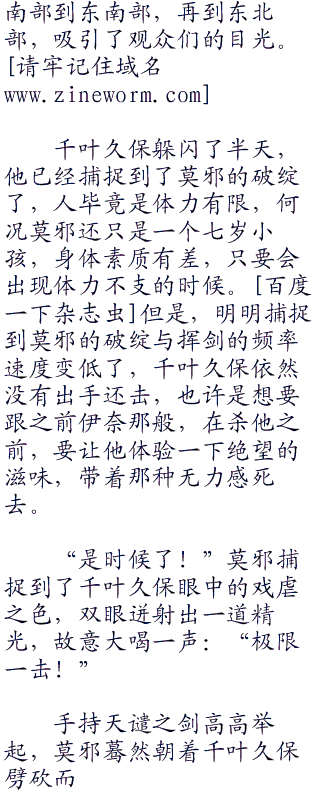 南部到东南部，再到东北
部，吸引了观众们的目光。
[请牢记住域名
www.zineworm.com]
千叶久保躲闪了半天，
他已经捕捉到了莫邪的破绽
了，人毕竟是体力有限，何
况莫邪还只是一个七岁小
孩，身体素质有差，只要会
出现体力不支的时候。[百度
一下杂志虫]但是，明明捕捉
到莫邪的破绽与挥剑的频率
速度变低了，千叶久保依然
没有出手还击，也许是想要
跟之前伊奈那般，在杀他之
前，要让他体验一下绝望的
滋味，带着那种无力感死
去。
“是时候了！”莫邪捕
捉到了千叶久保眼中的戏虐
之色，双眼迸射出一道精
光，故意大喝一声：“极限
一击！”
手持天谴之剑高高举
起，莫邪蓦然朝着千叶久保
劈砍而